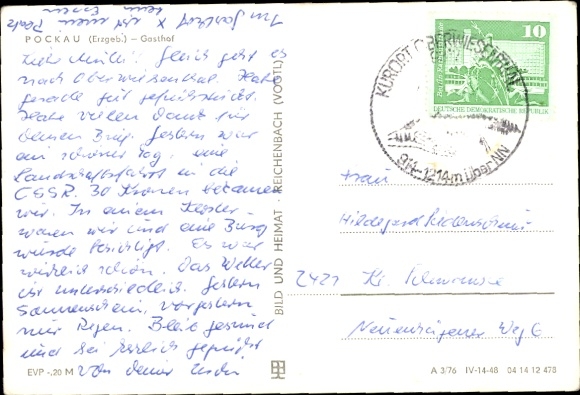 Im Gasthof X ist mein Platz
beim Essen
POCKAU (Erzgeb.) – Gasthof
Liebe Mutti! Gleich geht es
nach Oberwiesenthal. Habe
gerade gut gefrühstückt.
Habe vielen Dank für
Deinen Brief. Gestern war
ein schöner Tag, eine
Landschaftsfahrt in die
CSSR. 30 Kronen bekamen
wir. In einem
waren wir und eine Burg
wurde besichtigt. Es war
wirklich schön. Das Wetter
ist unterschiedlich. Gestern
Sonnenschein, vorgestern
nur Regen. Bleib gesund
und sei herzlich gegrüßt
von Deiner
EVP -.20 M
BILD UND HEIMAT · REICHENBACH (VOGTL)
10
DEUTSCHE DEMOKRATISCHE REPUBLIK
KURORT OBERWIESENTHAL
914-1214 m über NN
Frau
Hildegard
2421 Kr.
Weg 6
A 3/76 IV-14-48 04 14 12 478